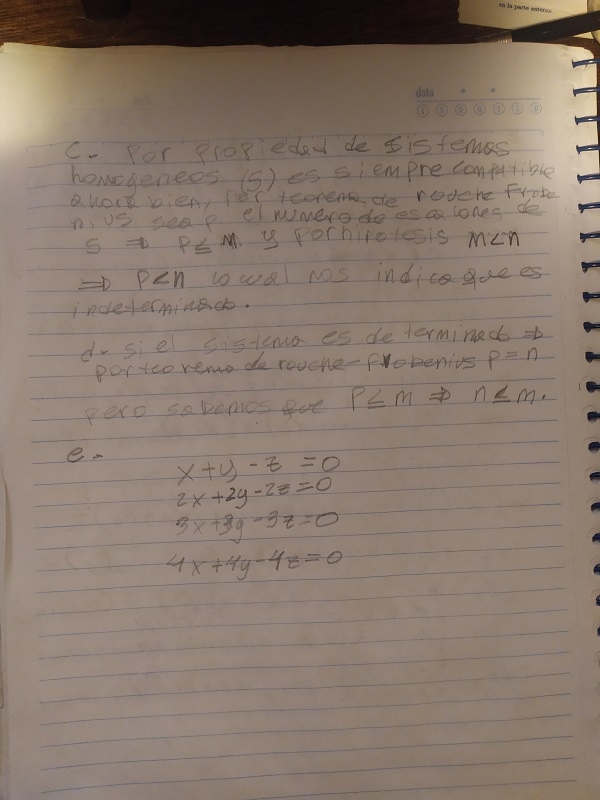 en la parte anterior
data
C.- Por propiedad de sistemas
homogeneos (S) es siempre compatible
ahora bien, por teorema de rouche Frobe
nius sea p el numero de escalones de
S ⇒ p ≤ m y por hipotesis m < n
⇒ p < n lo cual nos indica que es
indeterminado.
d- si el sistema es determinado ⇒
por teorema de rouche-Frobenius p = n
pero sabemos que p ≤ m ⇒ n ≤ m.
e.-
x + y - z = 0
2x + 2y - 2z = 0
3x + 3y - 3z = 0
4x + 4y - 4z = 0